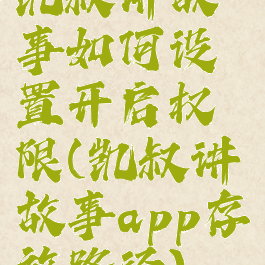 凯叔讲故
事如何设
置开启权
限(凯叔讲
故事app存
放路径)